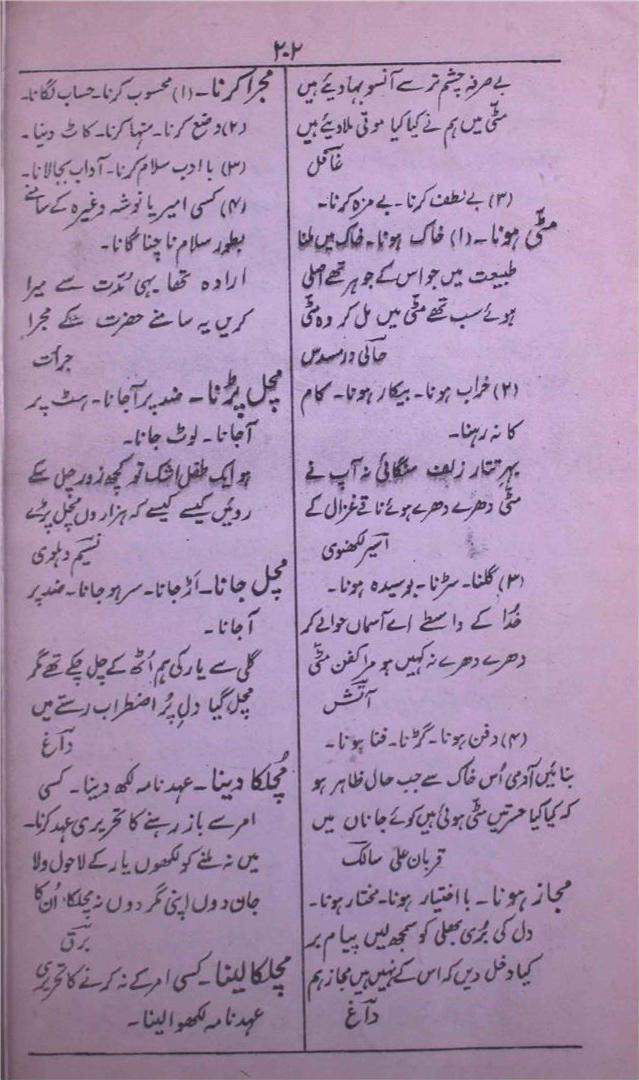 ۲۰۲
بے صرفہ چشم تر سے آنسو بہا دیئے ہیں
مٹی میں ہم نے کیا کیا موتی ملا دیئے ہیں
غافل
(۳) بے لطف کرنا۔ بے مزہ کرنا۔
مٹی ہونا۔ (۱) خاک ہونا۔ خاک میں ملنا
طبیعت میں جو اس کے جوہر تھے اصلی
ہوئے سب تھے مٹی میں مل کر وہ مٹی
حالی در مسدس
(۲) خراب ہونا۔ بیکار ہونا۔ کام
کا نہ رہنا۔
بہر نثار زلف منگائی نہ آپ نے
مٹی دھرے دھرے ہوئے نافے غزال کے
اسیر لکھنوی
(۳) گلنا۔ سڑنا۔ بوسیدہ ہونا۔
خدا کے واسطے اے آسماں حوالے کر
دھرے دھرے نہ کہیں ہو مرا کفن مٹی
آتش
(۴) دفن ہونا۔ گڑنا۔ فنا ہونا۔
بنائیں آدمی اُس خاک سے جب حال ظاہر ہو
کہ کیا کیا حسرتیں مٹی ہوئی ہیں کوئے جاناں میں
قربان علی سالک
مجاز ہونا۔ با اختیار ہونا۔ مختار ہونا۔
دل کی بُری بھلی کو سمجھ لیں پیام بر
کیا دخل دیں کہ اس کے نہیں ہیں مجاز ہم
داغ
مجرا کرنا۔ (۱) محسوب کرنا۔ حساب لگانا۔
(۲) وضع کرنا۔ منہا کرنا۔ کاٹ دینا۔
(۳) با ادب سلام کرنا۔ آداب بجالانا۔
(۴) کسی امیر یا نوشہ وغیرہ کے سامنے
بطور سلام ناچنا گانا۔
ارادہ تھا یہی مُدت سے میرا
کریں یہ سامنے حضرت کے مجرا
جرأت
مچل پڑنا۔ ضد پر آجانا۔ ہٹ پر
آجانا۔ لوٹ جانا۔
ہو ایک طفل اشک تو کچھ زور چل سکے
روئیں کیسے کیسے کہ ہزاروں مچل پڑے
نسیم دہلوی
مچل جانا۔ اَڑ جانا۔ سر ہو جانا۔ ضد پر
آجانا۔
گلی سے یار کی ہم اُٹھ کے چل چکے تھے مگر
مچل گیا دلِ پُر اضطراب رستے میں
داغ
مُچلکا دینا۔ عہد نامہ لکھ دینا۔ کسی
امر سے باز رہنے کا تحریری عہد کرنا۔
میں نہ ملنے کو لکھوں یار کے لاحول ولا
جان دوں اپنی مگر دوں نہ مچلکا اُن کا
برق
مچلکا لینا۔ کسی امر کے نہ کرنے کا تحریری
عہد نامہ لکھوا لینا۔